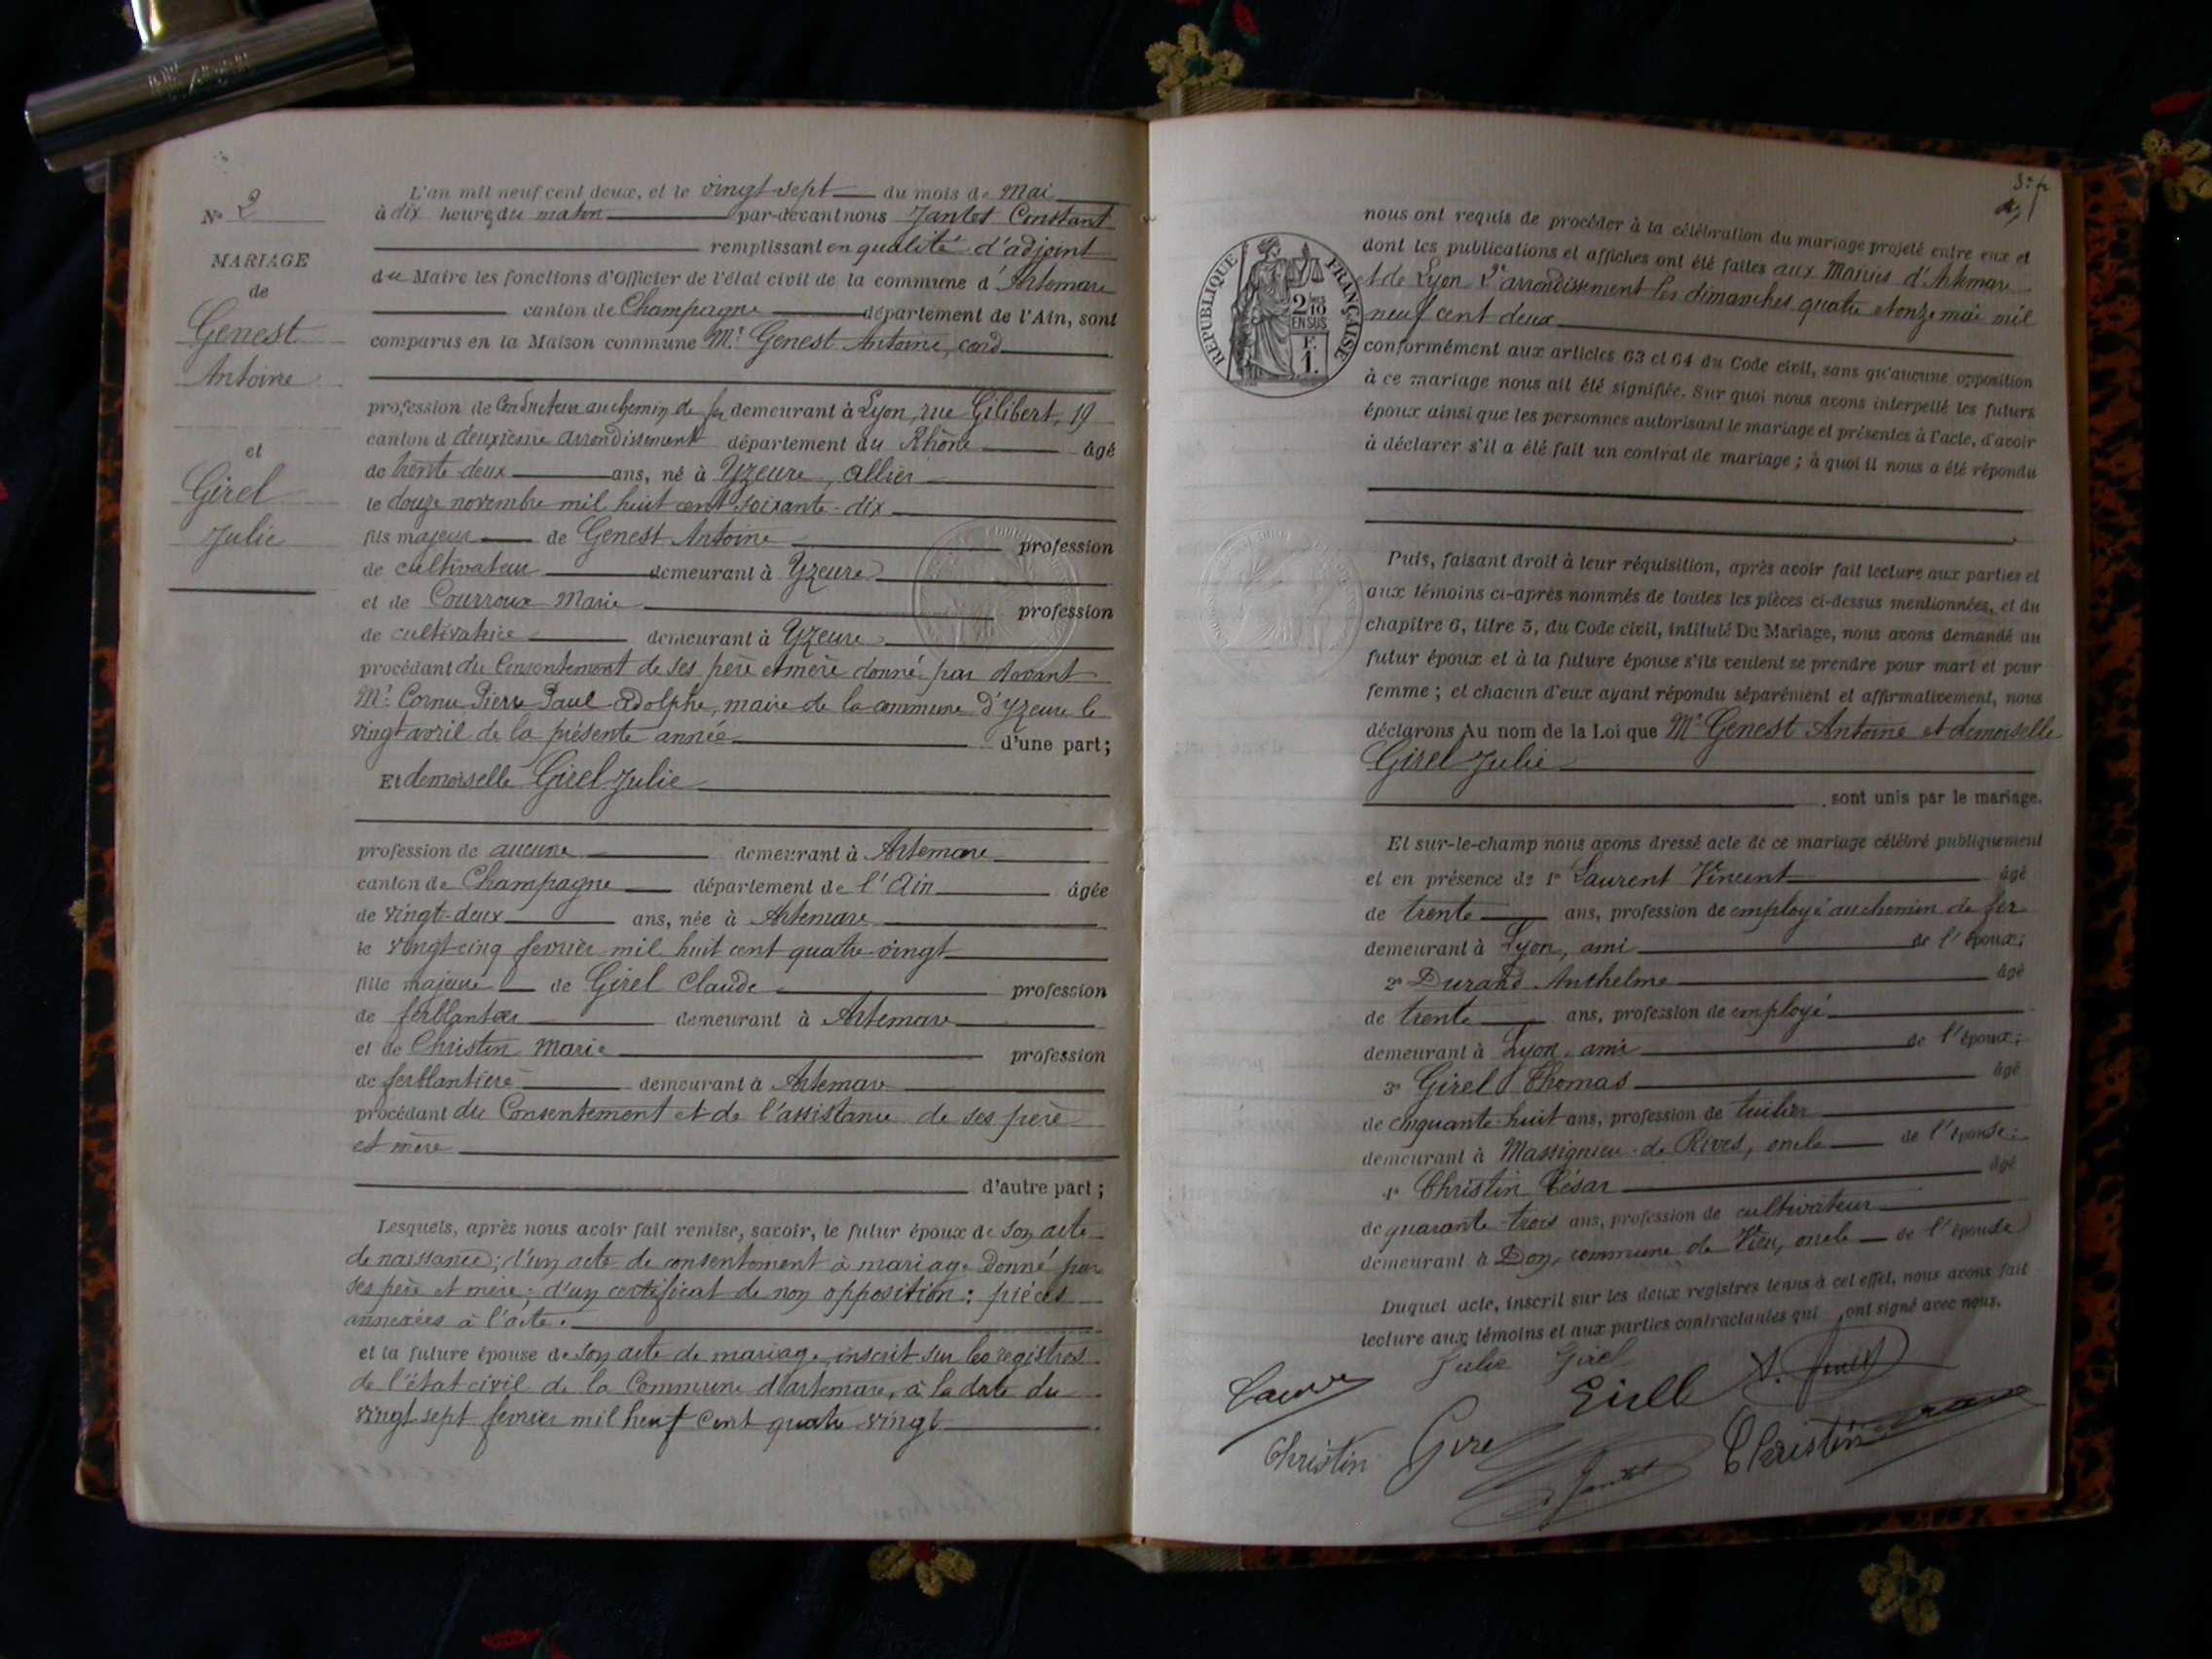 N° 2
MARIAGE
de
Genest
Antoine
et
Girel
Julie
L'an mil neuf cent deux, et le vingt-sept du mois de Mai
à dix heures du matin par-devant nous Jantet Constant
remplissant en qualité d'adjoint
du Maire les fonctions d'Officier de l'état civil de la commune d'Artemare
canton de Champagne département de l'Ain, sont
comparus en la Maison commune Mr Genest Antoine, cond
profession de Conducteur au chemin de fer demeurant à Lyon, rue Gilibert, 19
canton d deuxième arrondissement département du Rhône âgé
de trente-deux ans, né à Yzeure, Allier
le douze novembre mil huit cent soixante-dix
fils majeur de Genest Antoine profession
de cultivateur demeurant à Yzeure
et de Courroux Marie profession
de cultivatrice demeurant à Yzeure
procédant du Consentement de ses père et mère donné par devant
Mr Cornu Pierre Paul Adolphe, maire de la commune d'Yzeure le
vingt avril de la présente année d'une part;
Et demoiselle Girel Julie
profession de aucune demeurant à Artemare
canton de Champagne département de l'Ain âgée
de vingt-deux ans, née à Artemare
le vingt-cinq fevrier mil huit cent quatre-vingt
fille majeure de Girel Claude profession
de ferblantier demeurant à Artemare
et de Christin Marie profession
de ferblantière demeurant à Artemare
procédant du Consentement et de l'assistance de ses père
et mère
d'autre part;
Lesquels, après nous avoir fait remise, savoir, le futur époux de son acte
de naissance; d'un acte de consentement à mariage donné par
ses père et mère; d'un certificat de non opposition; pièces
annexées à l'acte.
et la future épouse de son acte de mariage, inscrit sur les registres
de l'état civil de la Commune d'Artemare, à la date du
vingt sept fevrier mil heuf cent quatre-vingt
RÉPUBLIQUE FRANÇAISE
2/10
EN SUS
F.
1.
nous ont requis de procéder à la célébration du mariage projeté entre eux et
dont les publications et affiches ont été faites aux Mairies d'Artemare
et de Lyon 2e arrondissement les dimanches quatre et onze mai mil
neuf cent deux
conformément aux articles 63 et 64 du Code civil, sans qu'aucune opposition
à ce mariage nous ait été signifiée. Sur quoi nous avons interpellé les futurs
époux ainsi que les personnes autorisant le mariage et présentes à l'acte, d'avoir
à déclarer s'il a été fait un contrat de mariage; à quoi il nous a été répondu
Puis, faisant droit à leur réquisition, après avoir fait lecture aux parties et
aux témoins ci-après nommés de toutes les pièces ci-dessus mentionnées, et du
chapitre 6, titre 5, du Code civil, intitulé Du Mariage, nous avons demandé au
futur époux et à la future épouse s'ils veulent se prendre pour mari et pour
femme; et chacun d'eux ayant répondu séparément et affirmativement, nous
déclarons Au nom de la Loi que Mr Genest Antoine et demoiselle
Girel Julie
sont unis par le mariage.
Et sur-le-champ nous avons dressé acte de ce mariage célébré publiquement
et en présence de 1° Laurent Vincent âgé
de trente ans, profession de employé au chemin de fer
demeurant à Lyon, ami de l'époux;
2° Durand Anthelme âgé
de trente ans, profession de employé
demeurant à Lyon, ami de l'époux;
3° Girel Thomas âgé
de cinquante-huit ans, profession de tuilier
demeurant à Massignieu-de-Rives, oncle de l'épouse;
4° Christin César âgé
de quarante-trois ans, profession de cultivateur
demeurant à Don, commune de Vieu, oncle de l'épouse
Duquel acte, inscrit sur les deux registres tenus à cet effet, nous avons fait
lecture aux témoins et aux parties contractantes qui ont signé avec nous.
Julie Girel
Christin
Christin